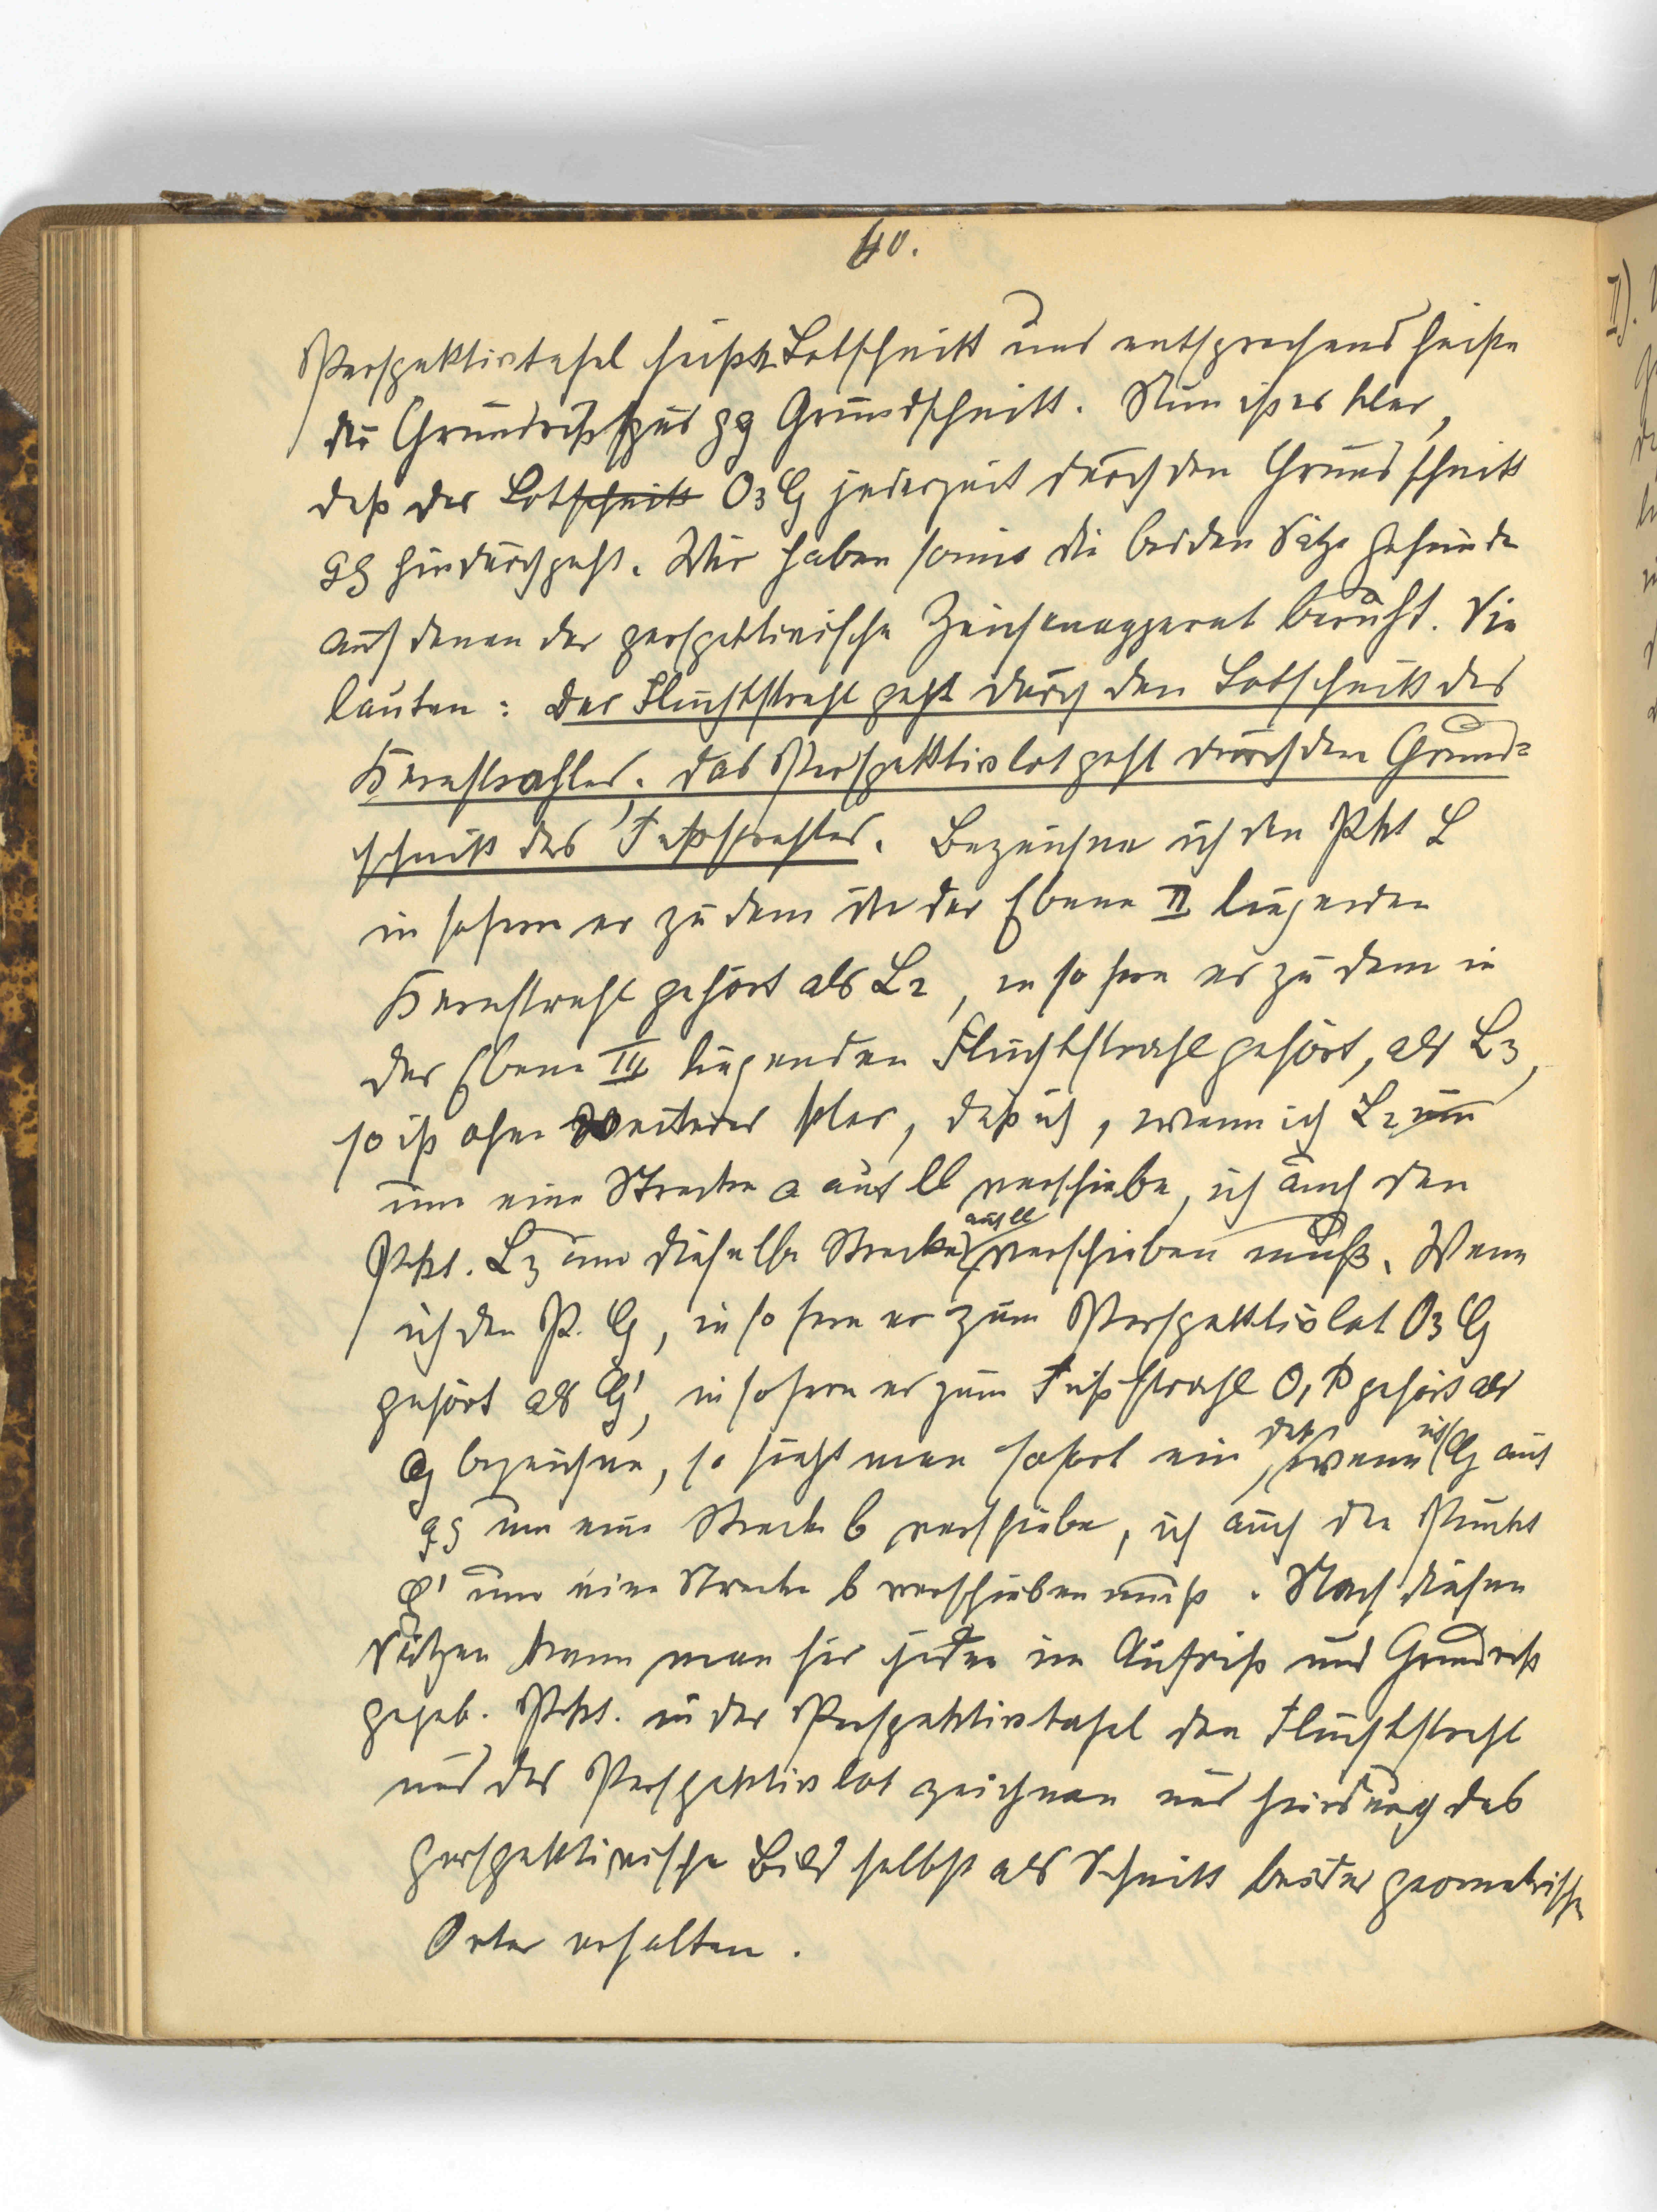 40.
Perspektivtafel heißt Lotschnitt und entsprechend heiße
die Grundrißspur gg Grundschnitt. Nun ist es klar,
daß das Lotschnitt O3 G jederzeit durch den Grundschnitt
gg hindurchgeht. Wir haben somit die beiden Sätze gefunden
auf denen der perspektivische Zeichenapparat beruht. Sie
lauten: Der Fluchtstrahl geht durch den Lotschnitt des
Kernstrahles. Das Perspektivlot geht durch den Grund=
schnitt des Fußstrahles. Bezeichne ich den Pkt L
in sofern er zu dem in der Ebene II liegenden
Kernstrahl gehört als L2, in so fern er zu dem in
der Ebene III liegenden Fluchtstrahl gehört, als L3,
so ist ohne weiteres klar, daß ich, wenn ich L2 um
um eine Strecke a auf ll verschiebe, ich auch den
Pkt. L3 um dieselbe Strecke auf ll verschieben muß. Wenn
ich den P. G, in so fern er zum Perspektivlot O3 G
gehört als G', in sofern er zum Fußstrahl O1 P gehört als
G bezeichne, so sieht man sofort ein daß, wenn ich G auf
gg um eine Strecke b verschiebe, ich auch den Punkt
G' um eine Strecke b verschieben muß. Nach diesen
Sätzen kann man für jeden im Aufriß und Grundriß
gegeb. Pkt. in der Perspektivtafel den Fluchtstrahl
und das Perspektivlot zeichnen und hierdurch das
perspektivische Bild selbst als Schnitt beider geometrische
Orter erhalten.